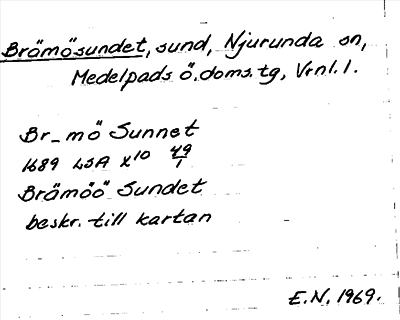 Brämösundet, sund, Njurunda sn,
Medelpads ö. doms. tg, Vrnl. l.
Br_mö Sunnet
1689 LSA X10 49/1
Brämöö Sundet
beskr. till kartan
E.N. 1969.